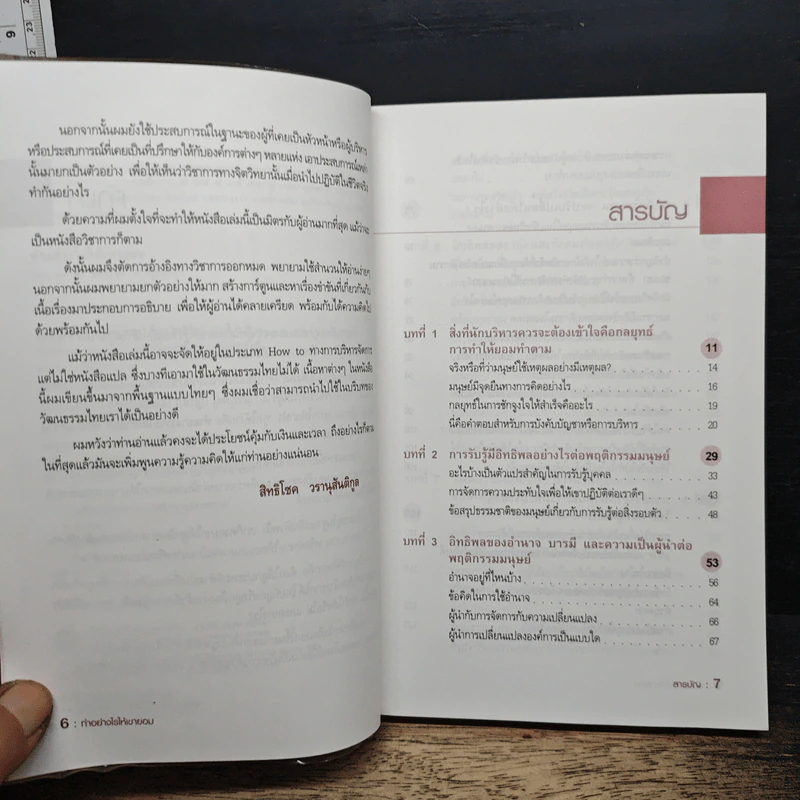 นอกจากนั้นผมยังใช้ประสบการณ์ในฐานะของผู้ที่เคยเป็นหัวหน้าหรือผู้บริหาร
หรือประสบการณ์ที่เคยเป็นที่ปรึกษาให้กับองค์การต่างๆ หลายแห่ง เอาประสบการณ์เหล่า
นั้นมายกเป็นตัวอย่าง เพื่อให้เห็นว่าวิชาการทางจิตวิทยานั้นเมื่อนำไปปฏิบัติในชีวิตจริง
ทำกันอย่างไร
ด้วยความที่ผมตั้งใจที่จะทำให้หนังสือเล่มนี้เป็นมิตรกับผู้อ่านมากที่สุด แม้ว่าจะ
เป็นหนังสือวิชาการก็ตาม
ดังนั้นผมจึงตัดการอ้างอิงทางวิชาการออกหมด พยายามใช้สำนวนให้อ่านง่ายๆ
นอกจากนั้นผมพยายามยกตัวอย่างให้มาก สร้างการ์ตูนและหาเรื่องขำขันที่เกี่ยวกันกับ
เนื้อเรื่องมาประกอบการอธิบาย เพื่อให้ผู้อ่านได้คลายเครียด พร้อมกับได้ความคิดไป
ด้วยพร้อมกันไป
แม้ว่าหนังสือเล่มนี้อาจจะจัดให้อยู่ในประเภท How to ทางการบริหารจัดการ
แต่ไม่ใช่หนังสือแปล ซึ่งบางทีเอามาใช้ในวัฒนธรรมไทยไม่ได้ เนื้อหาต่างๆ ในหนังสือ
นี้ผมเขียนขึ้นมาจากพื้นฐานแบบไทยๆ ซึ่งผมเชื่อว่าสามารถนำไปใช้ในบริบทของ
วัฒนธรรมไทยเราได้เป็นอย่างดี
ผมหวังว่าท่านอ่านแล้วคงจะได้ประโยชน์คุ้มกับเงินและเวลา ถึงอย่างไรก็ตาม
ในที่สุดแล้วมันจะเพิ่มพูนความรู้ความคิดให้แก่ท่านอย่างแน่นอน
สิทธิโชค วรานุสันติกูล
6 : ทำอย่างไรให้เขายอม
สารบัญ
บทที่ 1 สิ่งที่นักบริหารควรจะต้องเข้าใจคือกลยุทธ์
การทำให้ยอมทำตาม 11
จริงหรือที่ว่ามนุษย์ใช้เหตุผลอย่างมีเหตุผล? 14
มนุษย์มีจุดยืนทางการคิดอย่างไร 16
กลยุทธ์ในการชักจูงใจให้สำเร็จคืออะไร 19
นี่คือคำตอบสำหรับการบังคับบัญชาหรือการบริหาร 20
บทที่ 2 การรับรู้มีอิทธิพลอย่างไรต่อพฤติกรรมมนุษย์ 29
อะไรบ้างเป็นตัวแปรสำคัญในการรับรู้บุคคล 33
การจัดการความประทับใจเพื่อให้เขาปฏิบัติต่อเราดีๆ 43
ข้อสรุปธรรมชาติของมนุษย์เกี่ยวกับการรับรู้ต่อสิ่งรอบตัว 48
บทที่ 3 อิทธิพลของอำนาจ บารมี และความเป็นผู้นำต่อ
พฤติกรรมมนุษย์ 53
อำนาจอยู่ที่ไหนบ้าง 56
ข้อคิดในการใช้อำนาจ 64
ผู้นำกับการจัดการกับความเปลี่ยนแปลง 66
ผู้นำการเปลี่ยนแปลงองค์การเป็นแบบใด 67
สารบัญ : 7